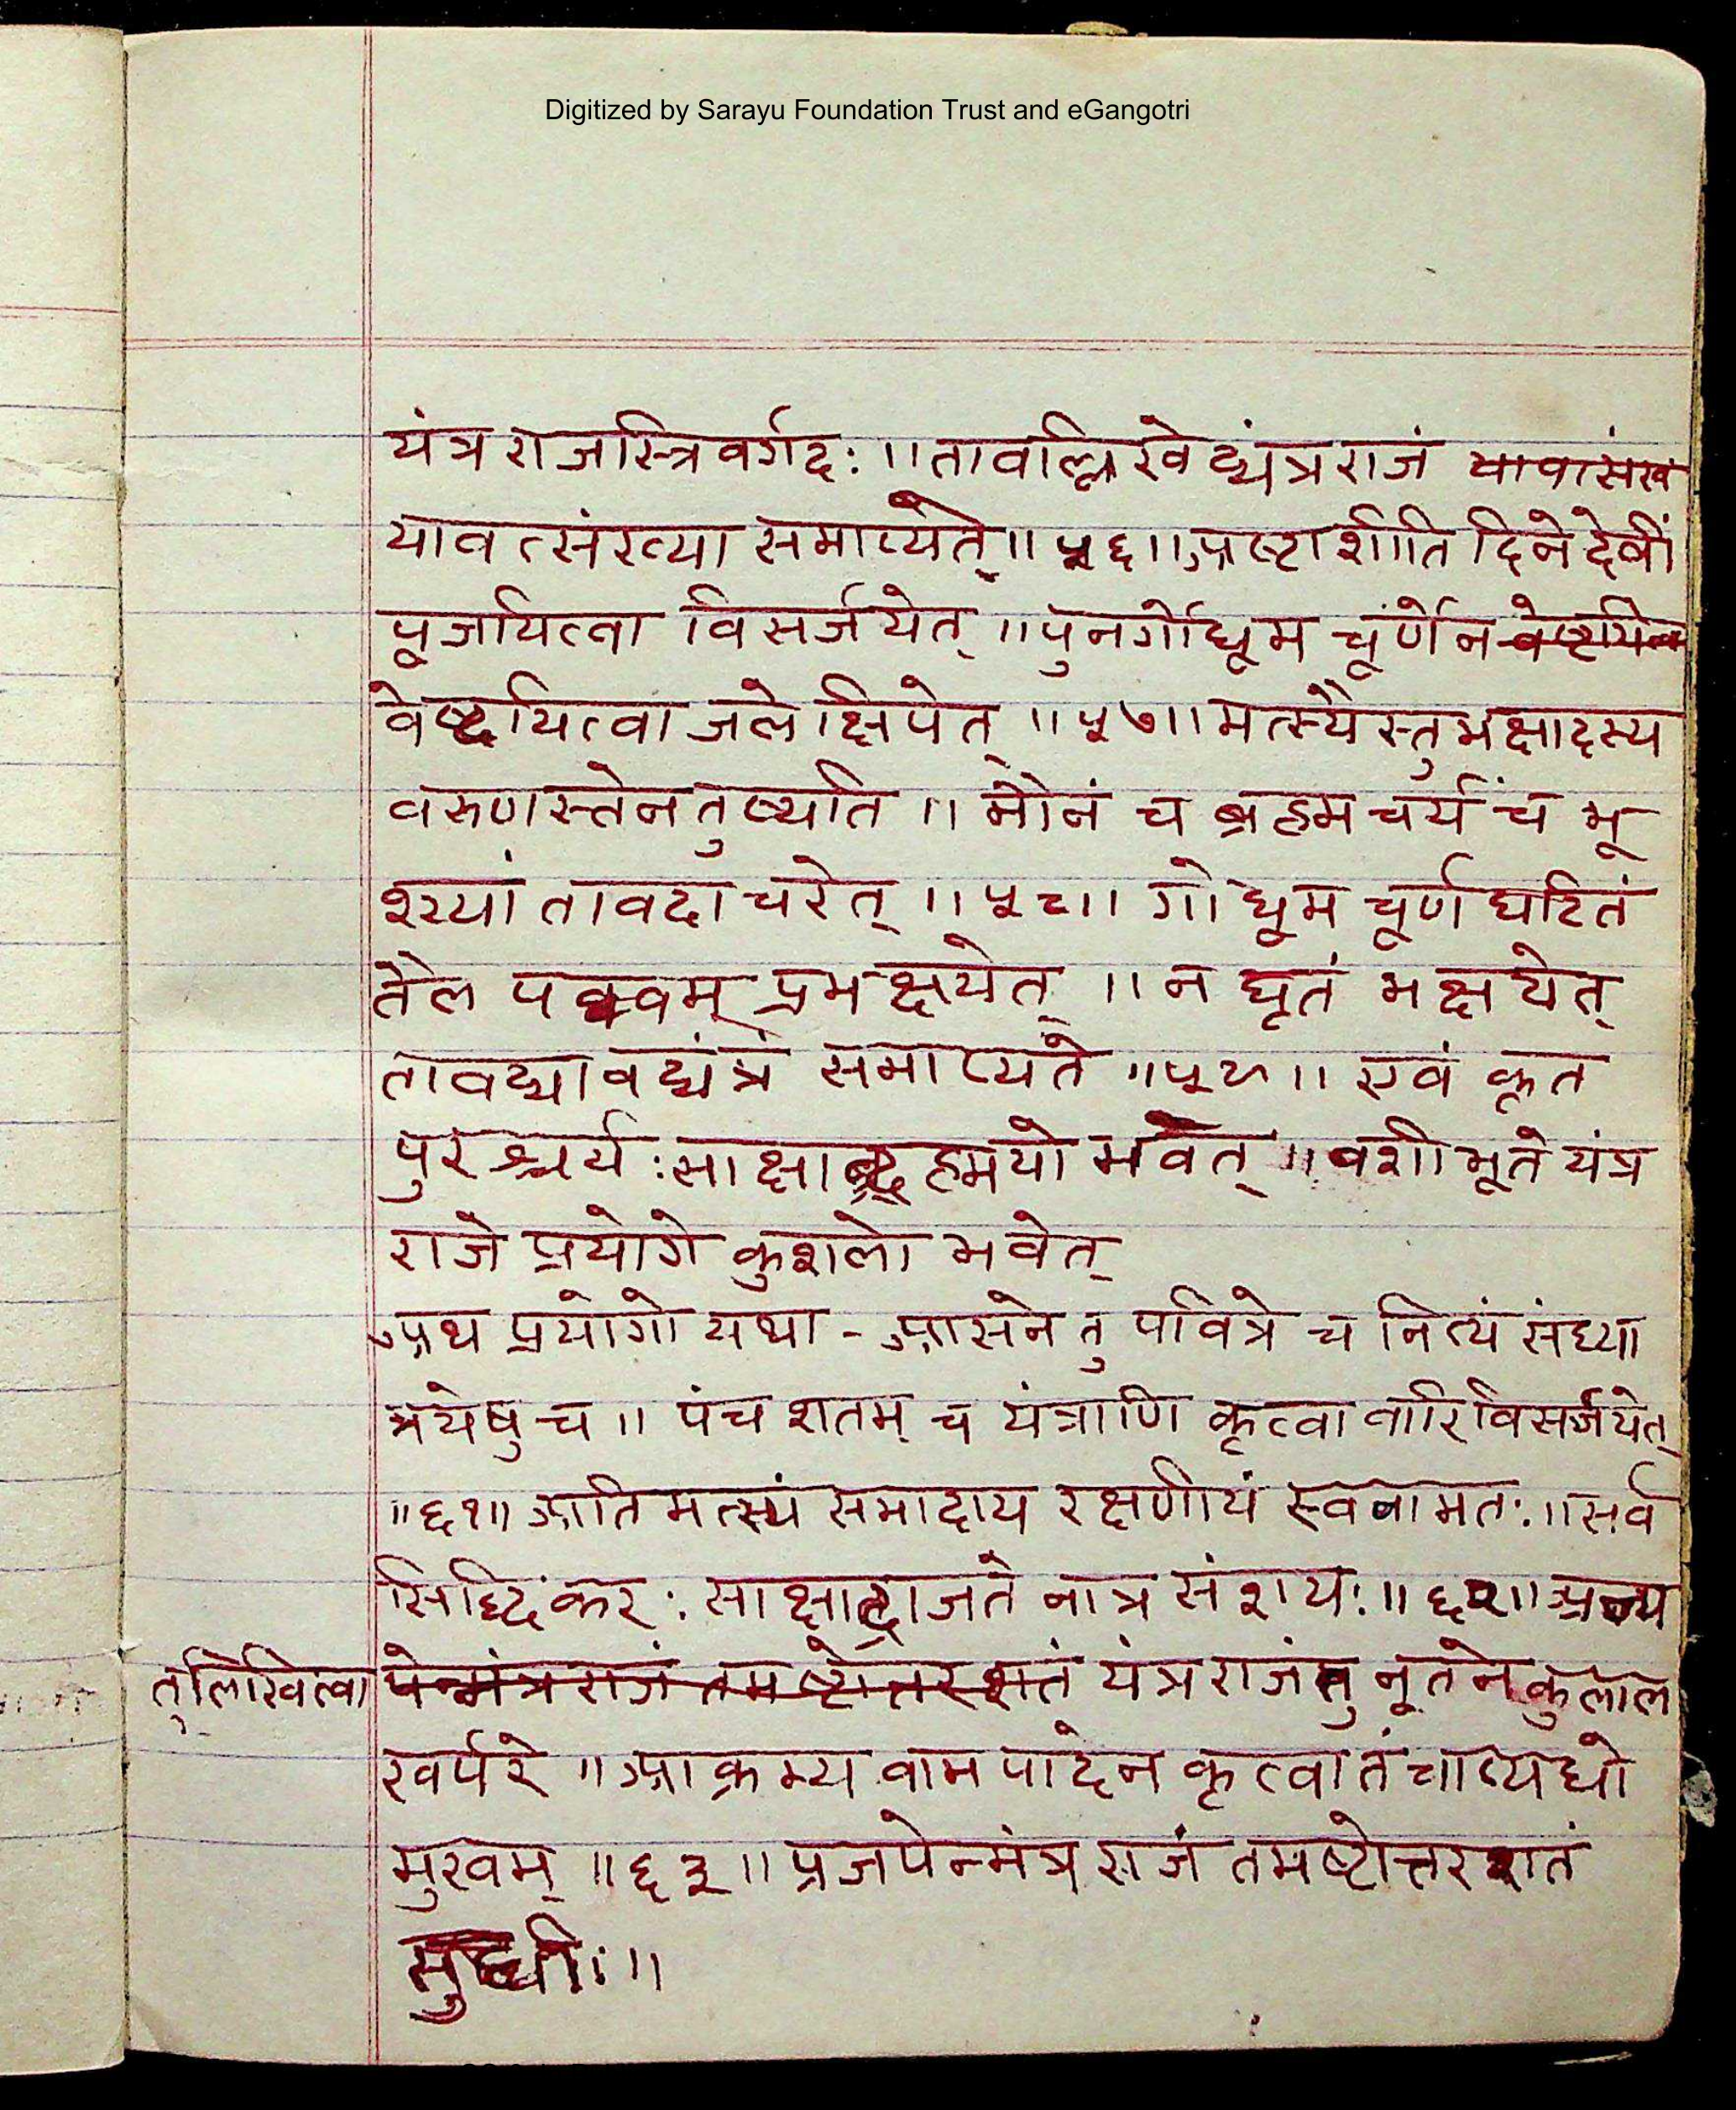 Digitized by Sarayu Foundation Trust and eGangotri
यंत्रराजस्त्रिवर्गदः ॥ तावल्लिखेद्यंत्रराजं
यावत्संख्या समाप्यते ॥ ५६ ॥ अष्टाशीति दिने देवीं
पूजयित्वा विसर्जयेत् ॥ पुनर्गोधूम चूर्णेन
वेष्टयित्वा जले क्षिपेत् ॥ ५७ ॥ मत्स्यैस्तु भक्षादस्य
वरुणस्तेन तुष्यति ॥ मौनं च ब्रह्मचर्यं च भू
शय्यां तावदाचरेत् ॥ ५८ ॥ गोधूम चूर्ण घटितं
तैल पक्वम् प्रभक्षयेत् ॥ न घृतं भक्षयेत्
तावद्यावद्यंत्रं समाप्यते ॥ ५९ ॥ एवं कृत
पुरश्चर्यः साक्षाद्ब्रह्मयो भवेत् ॥ वशीभूते यंत्र
राजे प्रयोगे कुशलो भवेत्
अथ प्रयोगो यथा - आसने तु पवित्रे च नित्यं संध्या
त्रयेषु च ॥ पंच शतम् च यंत्राणि कृत्वा वारि विसर्जयेत्
॥ ६१ ॥ अति मत्स्यं समादाय रक्षणीयं स्वनामतः ॥ सर्व
सिद्धिकरः साक्षाद्राजते नात्र संशयः ॥ ६२ ॥
लिखित्वा येन्मंत्रराजं तमष्टोत्तरशतं यंत्रराजं तु नूतने कुलाल
खर्परे ॥ आक्रम्य वाम पादेन कृत्वा तं चाप्यधो
मुखम् ॥ ६३ ॥ प्रजपेन्मंत्रराजं तमष्टोत्तरशतं
सुधीः ॥